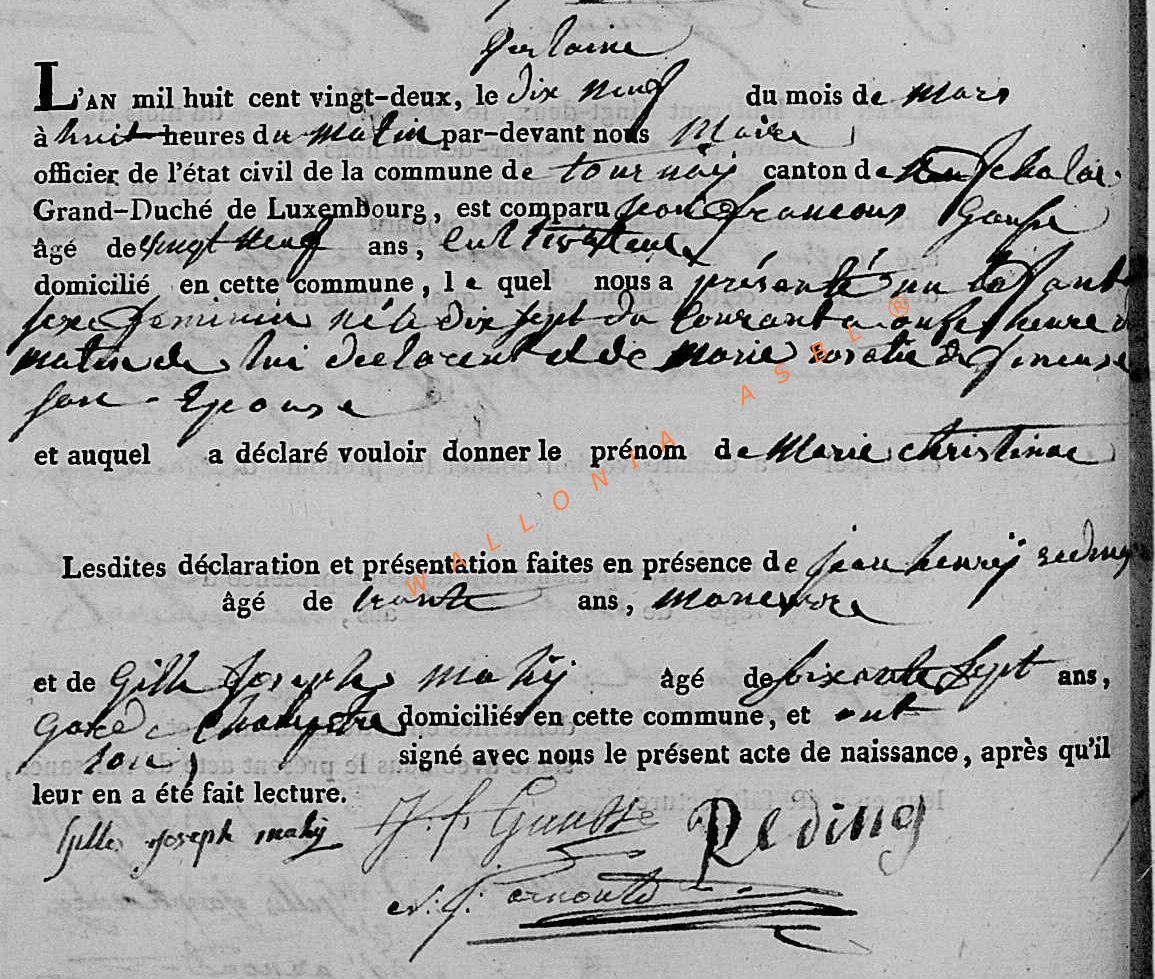 L'AN mil huit cent vingt-deux, le dix neuf du mois de Mars
à huit heures du Matin par-devant nous Maire
officier de l'état civil de la commune de tournaÿ canton de
Grand-Duché de Luxembourg, est comparu jean francois
âgé de vingt neuf ans, Cultivateur
domicilié en cette commune, le quel nous a présenté un Enfant
sexe feminin né le dix sept du Courant a onse heure d
matin de lui declarent et de Marie
son Epouse
et auquel a déclaré vouloir donner le prénom de Marie christinne
Lesdites déclaration et présentation faites en présence de jean henrÿ reding
âgé de trante ans, Maneuvre
et de Gille Joseph Mahÿ âgé de soixante sept ans,
Garde Champetre domiciliés en cette commune, et ont
tous signé avec nous le présent acte de naissance, après qu'il
leur en a été fait lecture.
gilles Joseph mahÿ J. f. Reding
WALLONIA ASBL ®